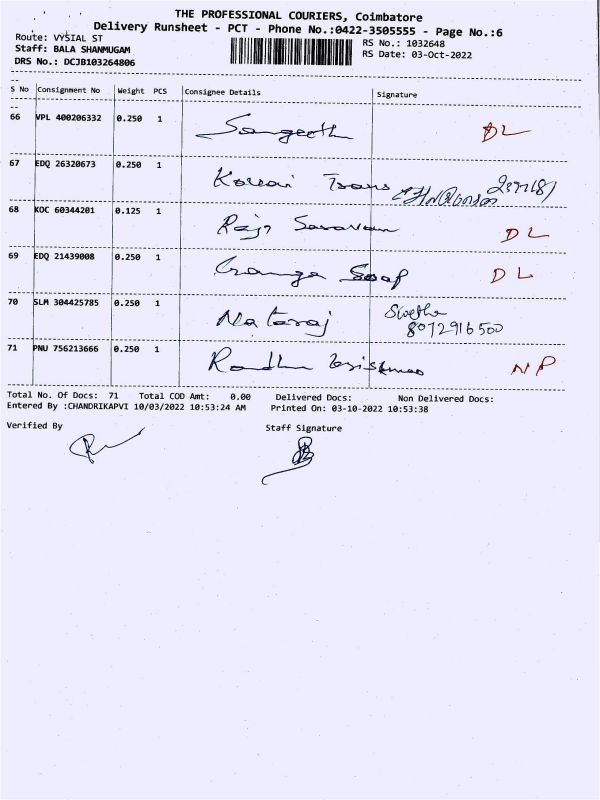 THE PROFESSIONAL COURIERS, Coimbatore
Delivery Runsheet - PCT - Phone No.:0422-3505555 - Page No.:6
Route: VYSIAL ST
RS No.: 1032648
Staff: BALA SHANMUGAM
RS Date: 03-Oct-2022
DRS No.: DCJB103264806
S No Consignment No Weight PCS Consignee Details Signature
66 VPL 400206332 0.250 1 Sangeeth DL
67 EDQ 26320673 0.250 1 Kovai Trans
68 KOC 60344201 0.125 1 Raja Saravan DL
69 EDQ 21439008 0.250 1 Ganga Soap DL
70 SLM 304425785 0.250 1 Nataraj Swetha
8072916500
71 PNU 756213666 0.250 1 Radha NP
Total No. Of Docs: 71 Total COD Amt: 0.00 Delivered Docs: Non Delivered Docs:
Entered By :CHANDRIKAPVI 10/03/2022 10:53:24 AM Printed On: 03-10-2022 10:53:38
Verified By Staff Signature